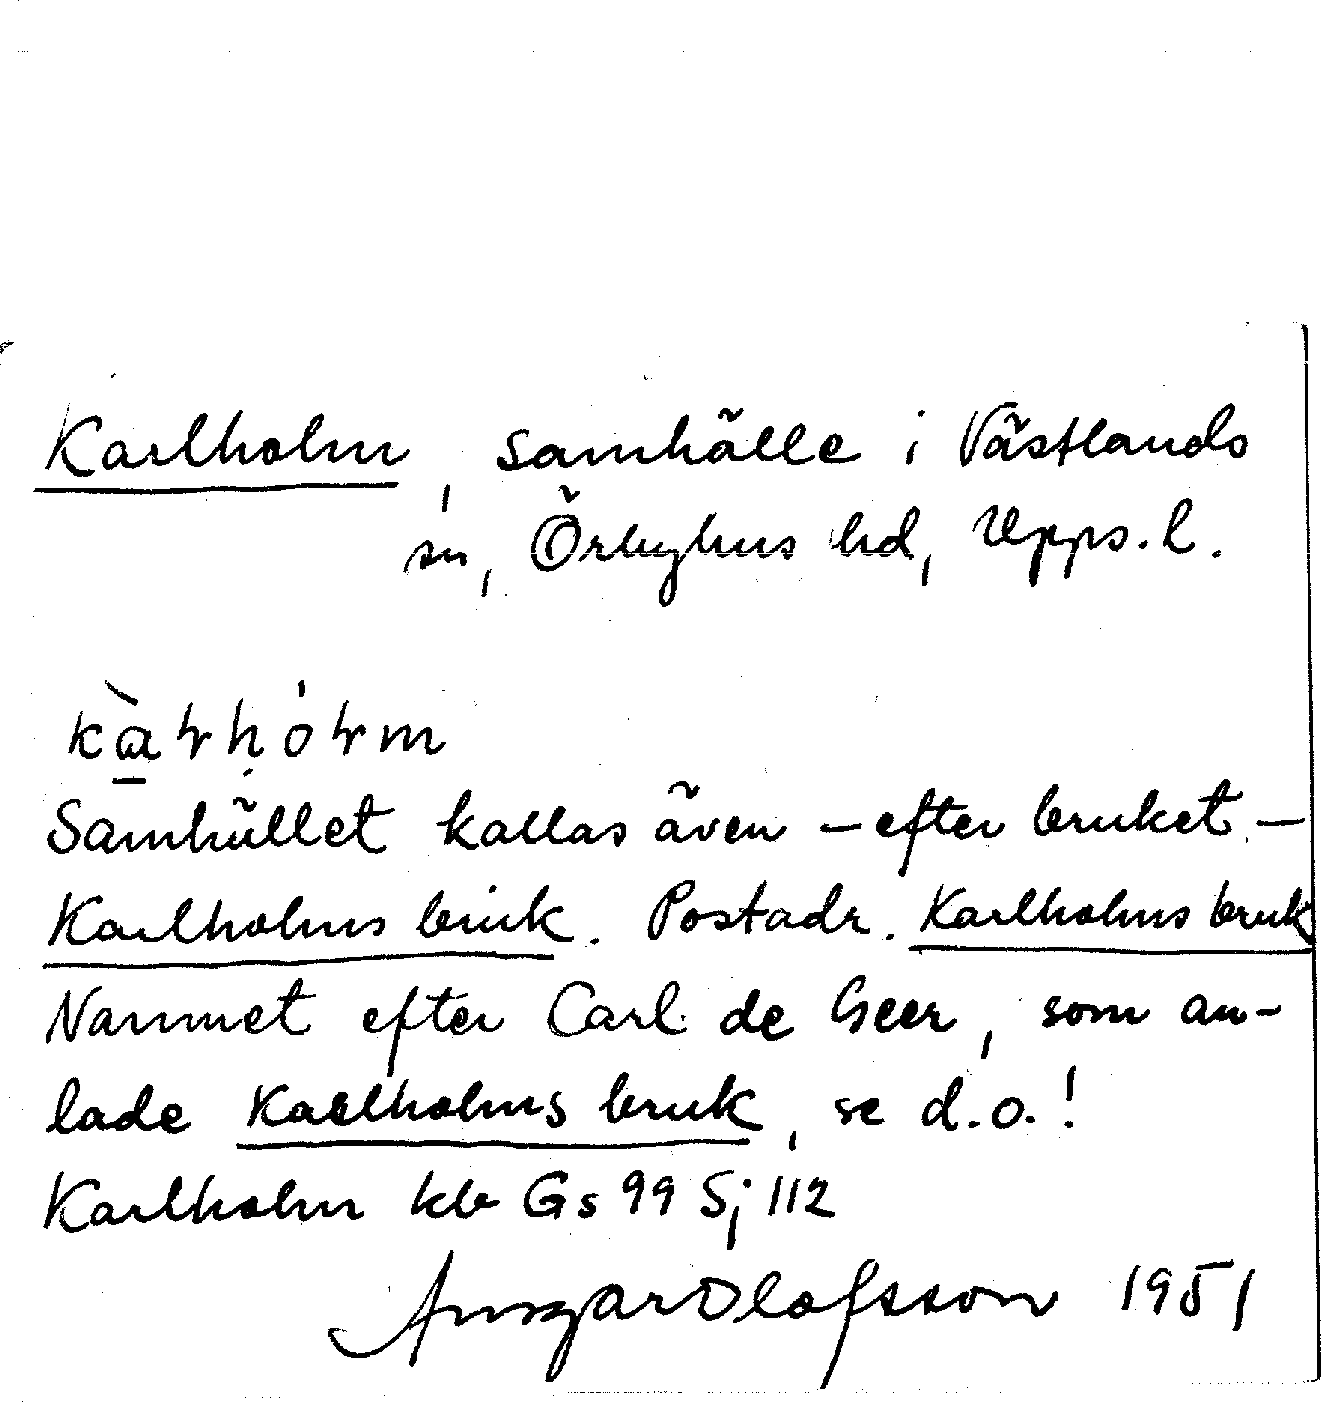 Karlholm, samhälle i Västlands
sn, Örbyhus hd, Upps. l.
Samhället kallas även – efter bruket –
Karlholms bruk. Postadr. Karlholms bruk
Namnet efter Carl de Geer, som an-
lade Karlholms bruk, se d.o.!
Karlholm kb Gs 99 Sj 112
Ansgar Olofsson 1951